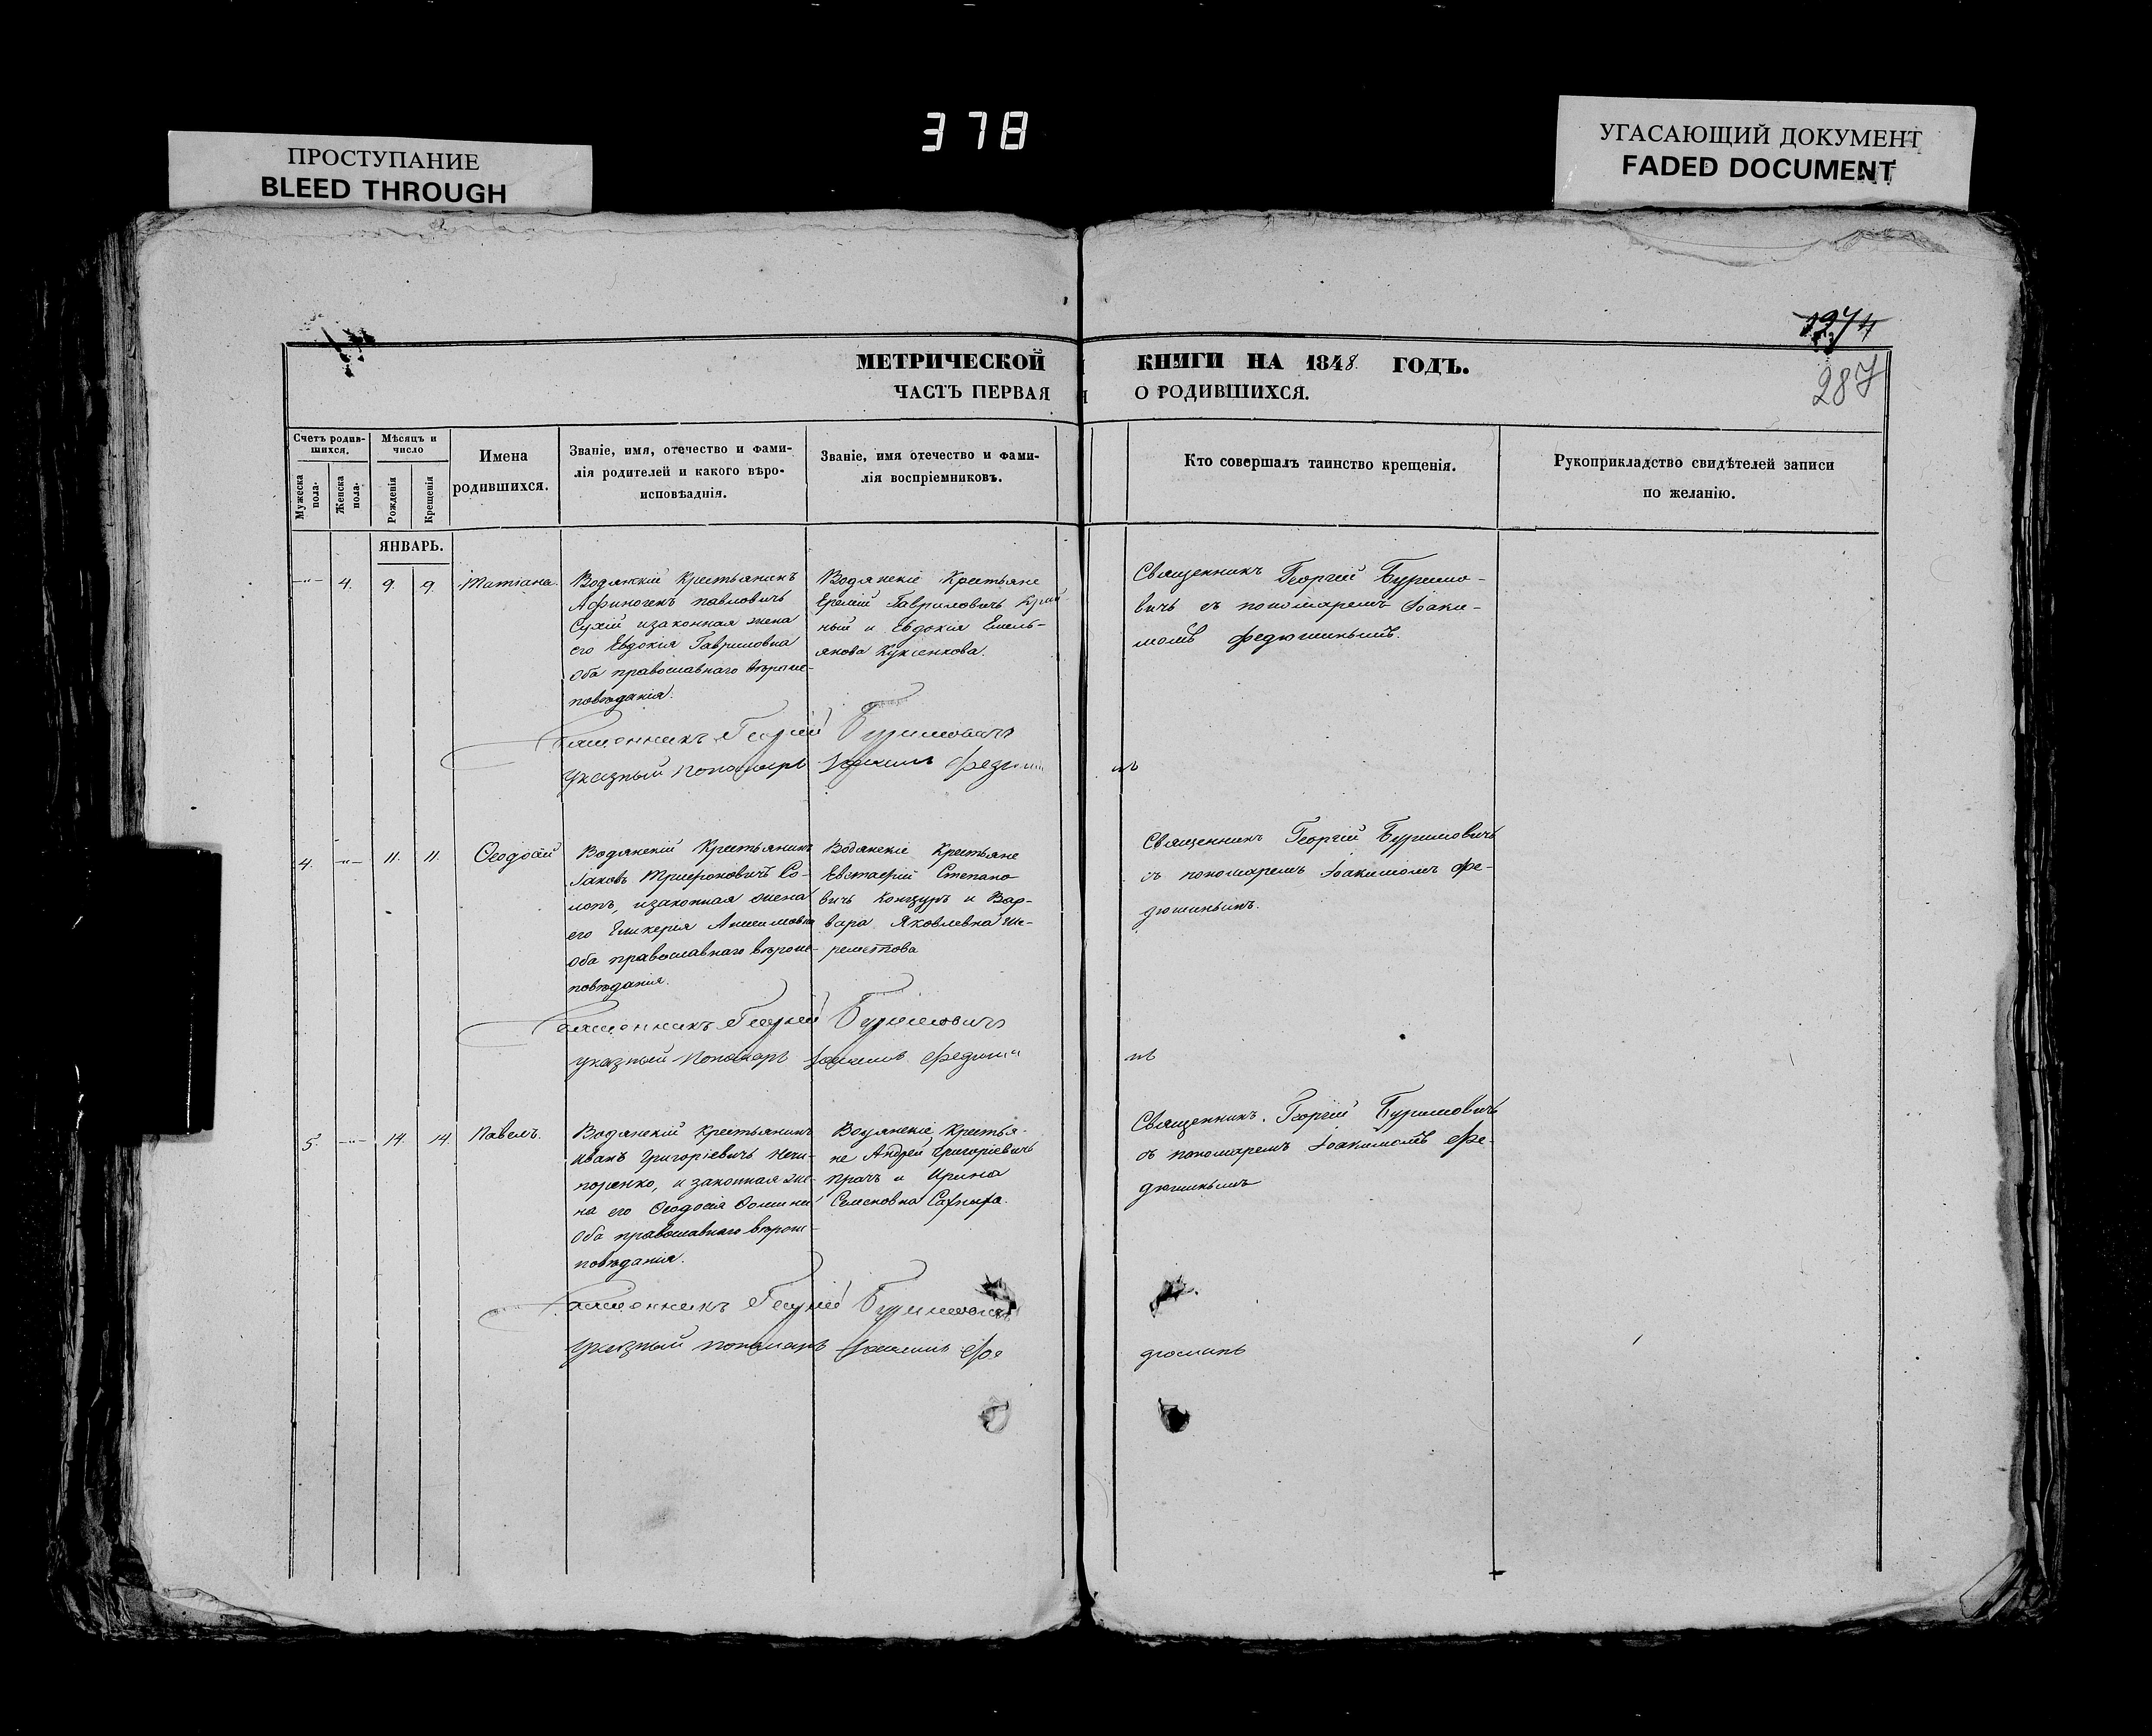 378
ПРОСТУПАНИЕ
BLEED THROUGH
УГАСАЮЩИЙ ДОКУМЕНТ
FADED DOCUMENT
1274
287
МЕТРИЧЕСКОЙ КНИГИ НА 1848. ГОДЪ.
ЧАСТЬ ПЕРВАЯ О РОДИВШИХСЯ.
Счетъ родив-
шихся.
Мужеска
пола.
Женска
пола.
Мѣсяцъ и
число
Рожденія
Крещенія
Имена
родившихся.
Званіе, имя, отечество и фами-
лія родителей и какого вѣро-
исповѣаднія.
Званіе, имя отечество и фами-
лія воспріемниковъ.
Кто совершалъ таинство крещенія.
Рукоприкладство свидѣтелей записи
по желанію.
ЯНВАРЬ.
4. 9. 9. Татіана.
Водянскій Крестьянинъ
Афиногенъ павловичъ
Сухій изаконная жена
его Евдокія Гавриловна
оба православнаго вѣроис-
повѣданія.
Водянскіе Крестьяне
Еремій Гавриловичъ
ный и Евдокія Емель-
янова
Священникъ Георгій Буримо-
вичъ съ пономаремъ Іоаки-
момъ Федюшинымъ.
Священникъ Георгій Буримовичъ
указный пономарь Іоакимъ
4. 11. 11. Ѳеодосій
Водянскій Крестьянинъ
Іаковъ Трифоновичъ Со-
лопъ, изаконная жена
его Гликерія
оба православнаго вѣроис-
повѣданія.
Водянскіе Крестьяне
Евстафій Степано-
вичъ и Вар-
вара Яковлевна
Священникъ Георгій Буримовичъ
съ пономаремъ Іоакимомъ Фе-
дюшинымъ.
Священникъ Георгій Буримовичъ
указный пономарь Іоакимъ
5. 14. 14. Павелъ.
Водянскій Крестьянинъ
Иванъ Григоріевичъ Нечи-
поренко, и законная же-
на его Ѳеодосія
оба православнаго вѣроис-
повѣданія.
Водянскіе Крестья-
не Андрей Григоріевичъ
Прачъ и Ирина
Семеновна
Священникъ. Георгій Буримовичъ
съ пономаремъ Іоакимомъ Фе-
дюшинымъ
Священникъ Георгій Буримовичъ
указный пономарь Іоакимъ Фе
дюшинъ